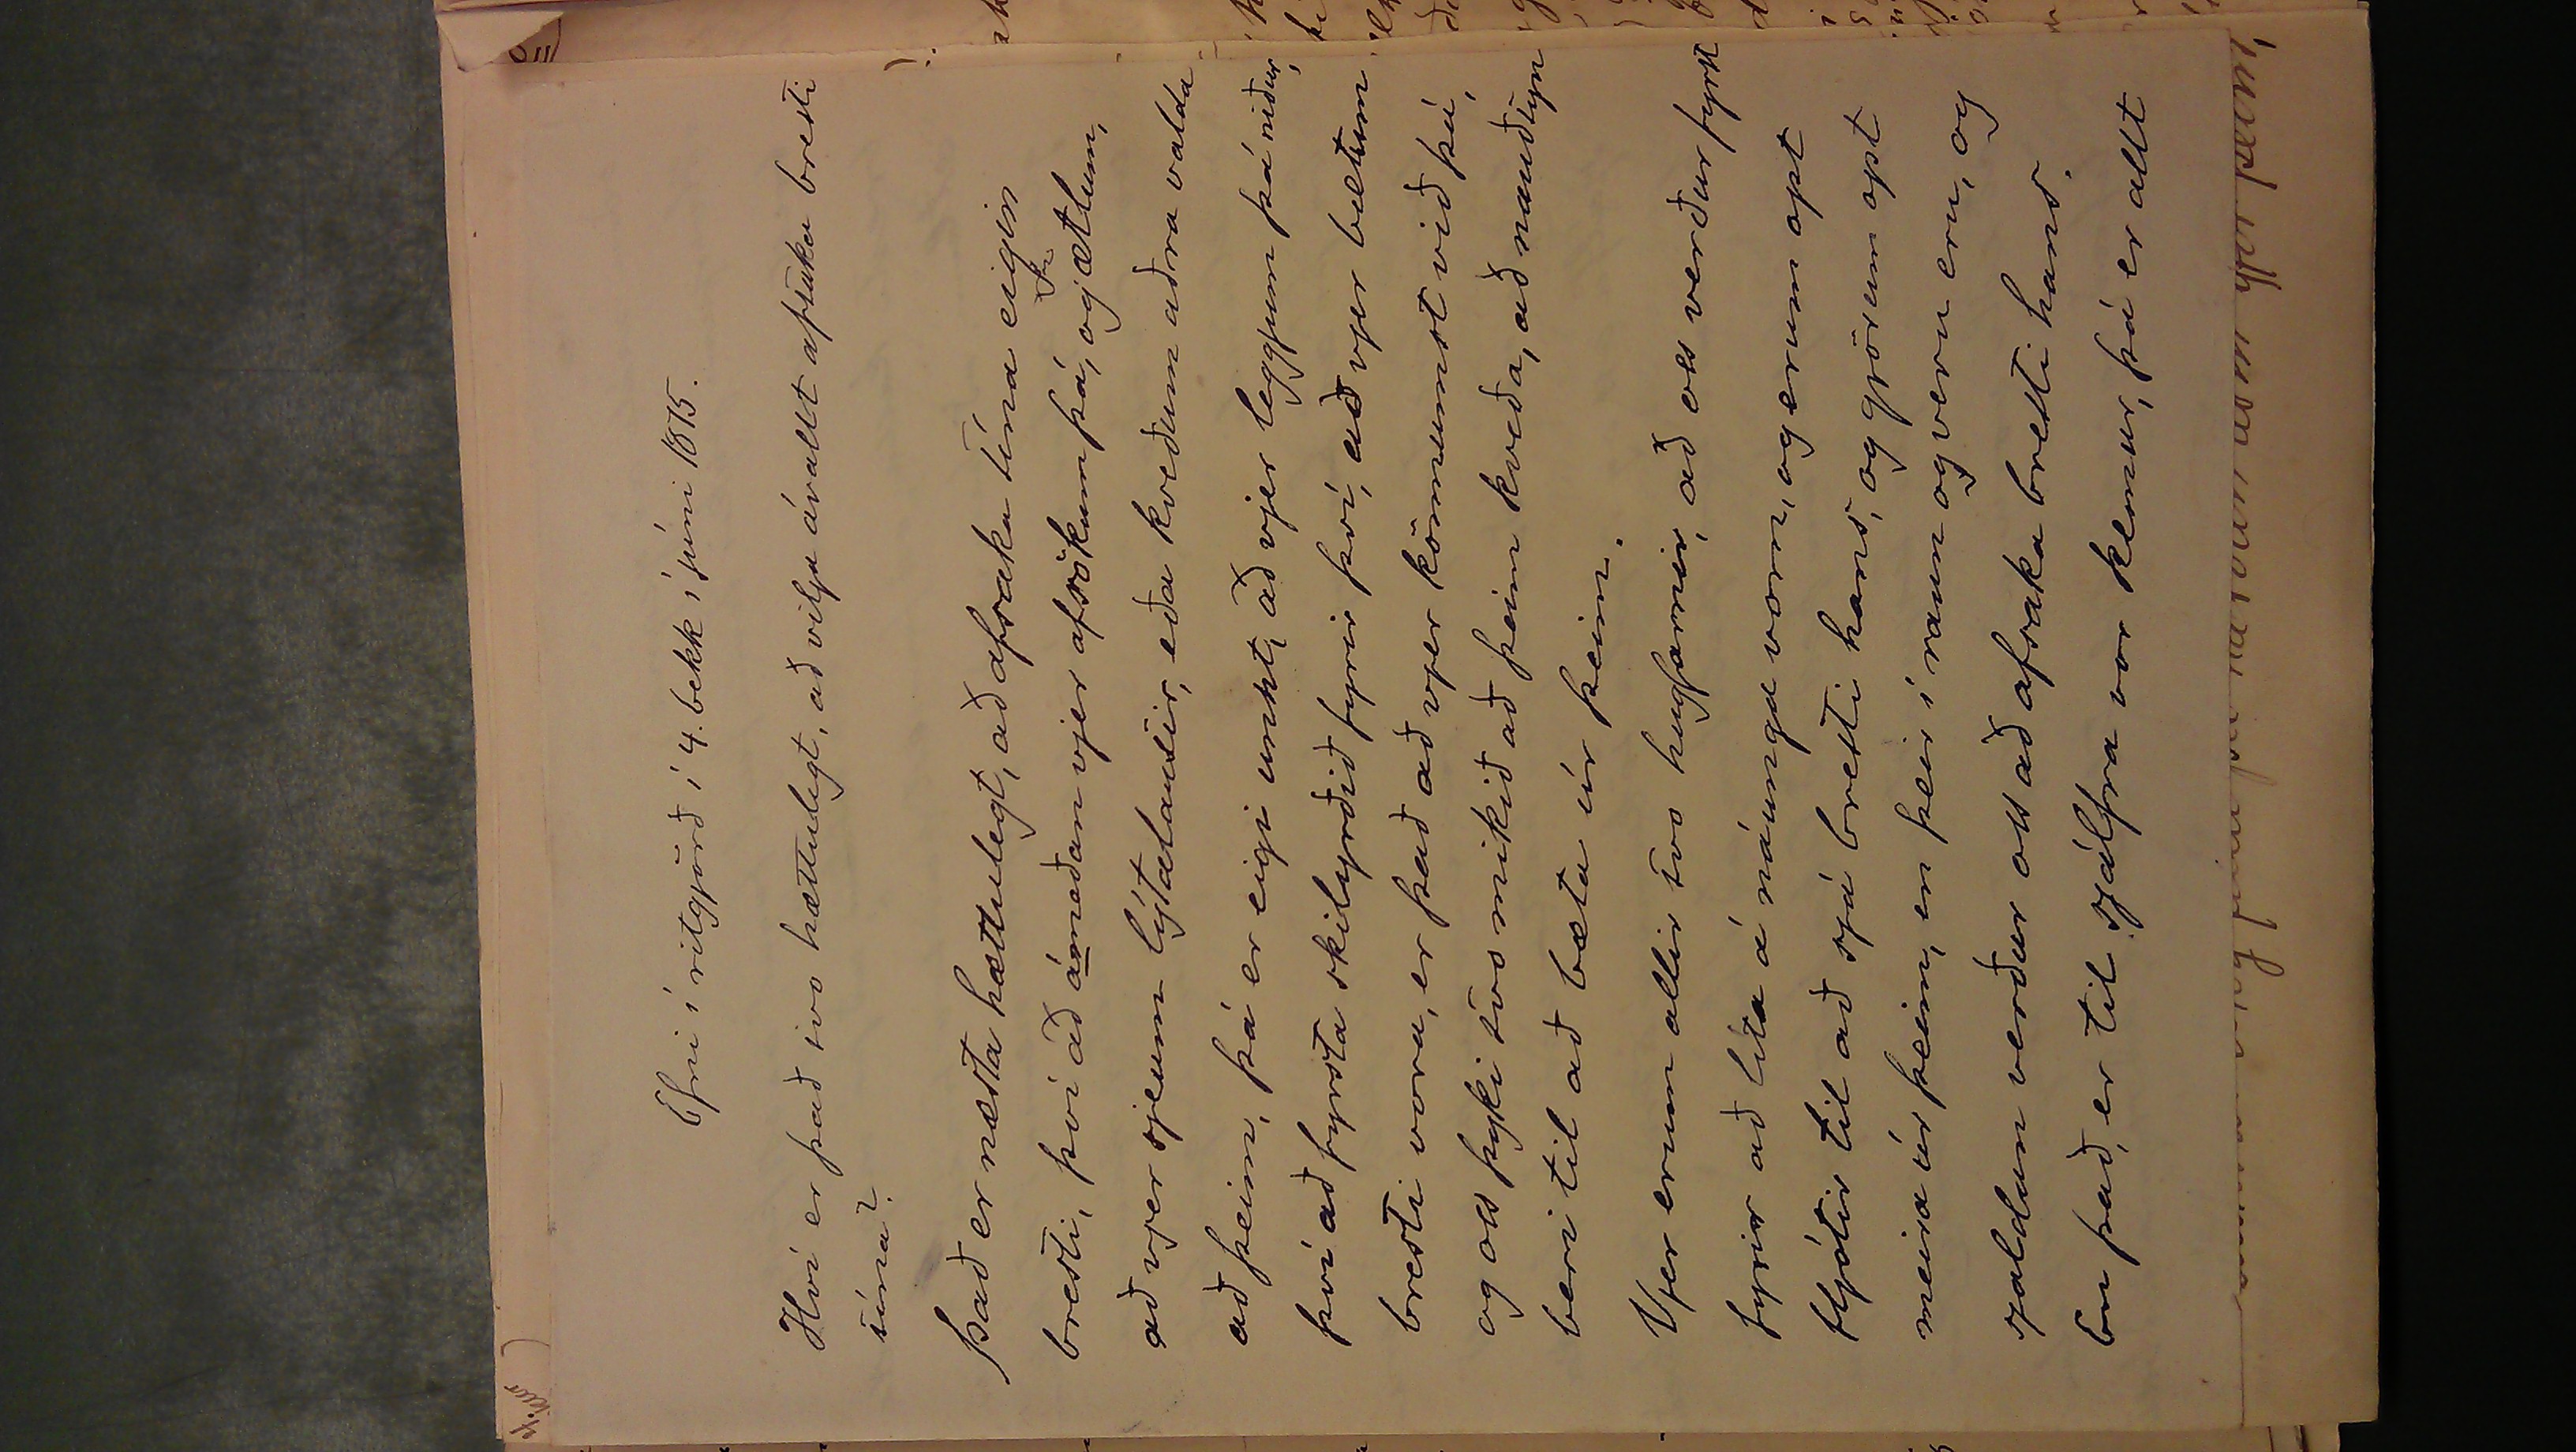 Efni í ritgjörð í 4. bekk í júni 1875.
Hví er það svo hættulegt, að vilja ávallt afsaka bresti
sína?
Það er næsta hættulegt, að afsaka sína eigin
bresti, því að ámeðan vjer afsökum þá, og ætlum,
að vjer sjeum lýtalausir, eða kveðum aðra valda
að þeim, þá er eigi unnt, að vjer leggjum þá niður,
því að fyrsta skilyrðið fyrir því, að vjer bætum
bresti vora, er það að vjer könnumst við þá,
og oss þyki svo mikið að þeim kveða, að nauðsyn
beri til að bæta úr þeim.
Vjer erum allir svo hugfarnir, að oss verður fyrst
fyrir að líta á náunga vorn, og erum opt
fljótir til að sjá bresti hans, og gjörum opt
meira úr þeim, en þeir í raun og veru eru, og
sjaldan verður oss að afsaka bresti hans.
En það, er til sjálfra vor kemur, þá er allt